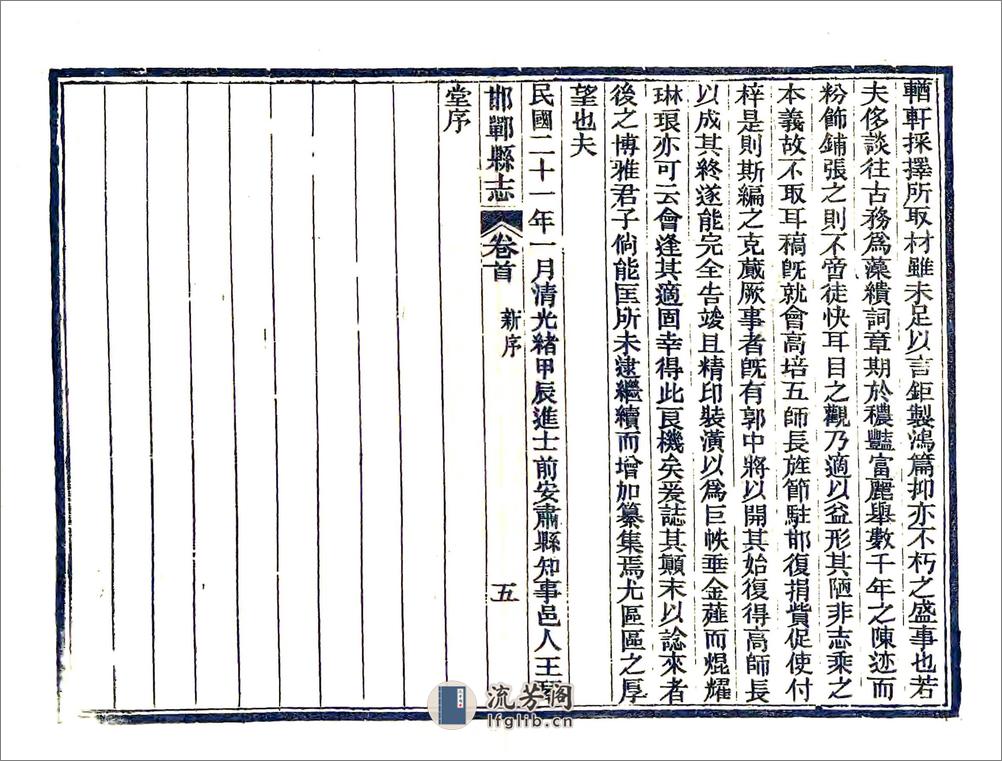 輶軒採擇所取材雖未足以言鉅製鴻篇抑亦不朽之盛事也若
夫侈談往古務爲藻繢詞章期於穠豔富麗舉數千年之陳迹而
粉飾鋪張之則不啻徒快耳目之觀乃適以益形其陋非志乘之
本義故不取耳稿旣就會高培五師長旌節駐邯復捐貲促使付
梓是則斯編之克蕆厥事者旣有郭中將以開其始復得高師長
以成其終遂能完全告竣且精印裝潢以爲巨帙垂金薤而焜耀
琳琅亦可云會逢其適固幸得此良機矣爰誌其顚末以諗來者
後之博雅君子倘能匡所未逮繼續而增加纂集焉尤區區之厚
望也夫
民國二十一年一月清光緖甲辰進士前安肅縣知事邑人王
邯鄲縣志 卷首 新序 五
堂序
流芳閣
lfglib.cn